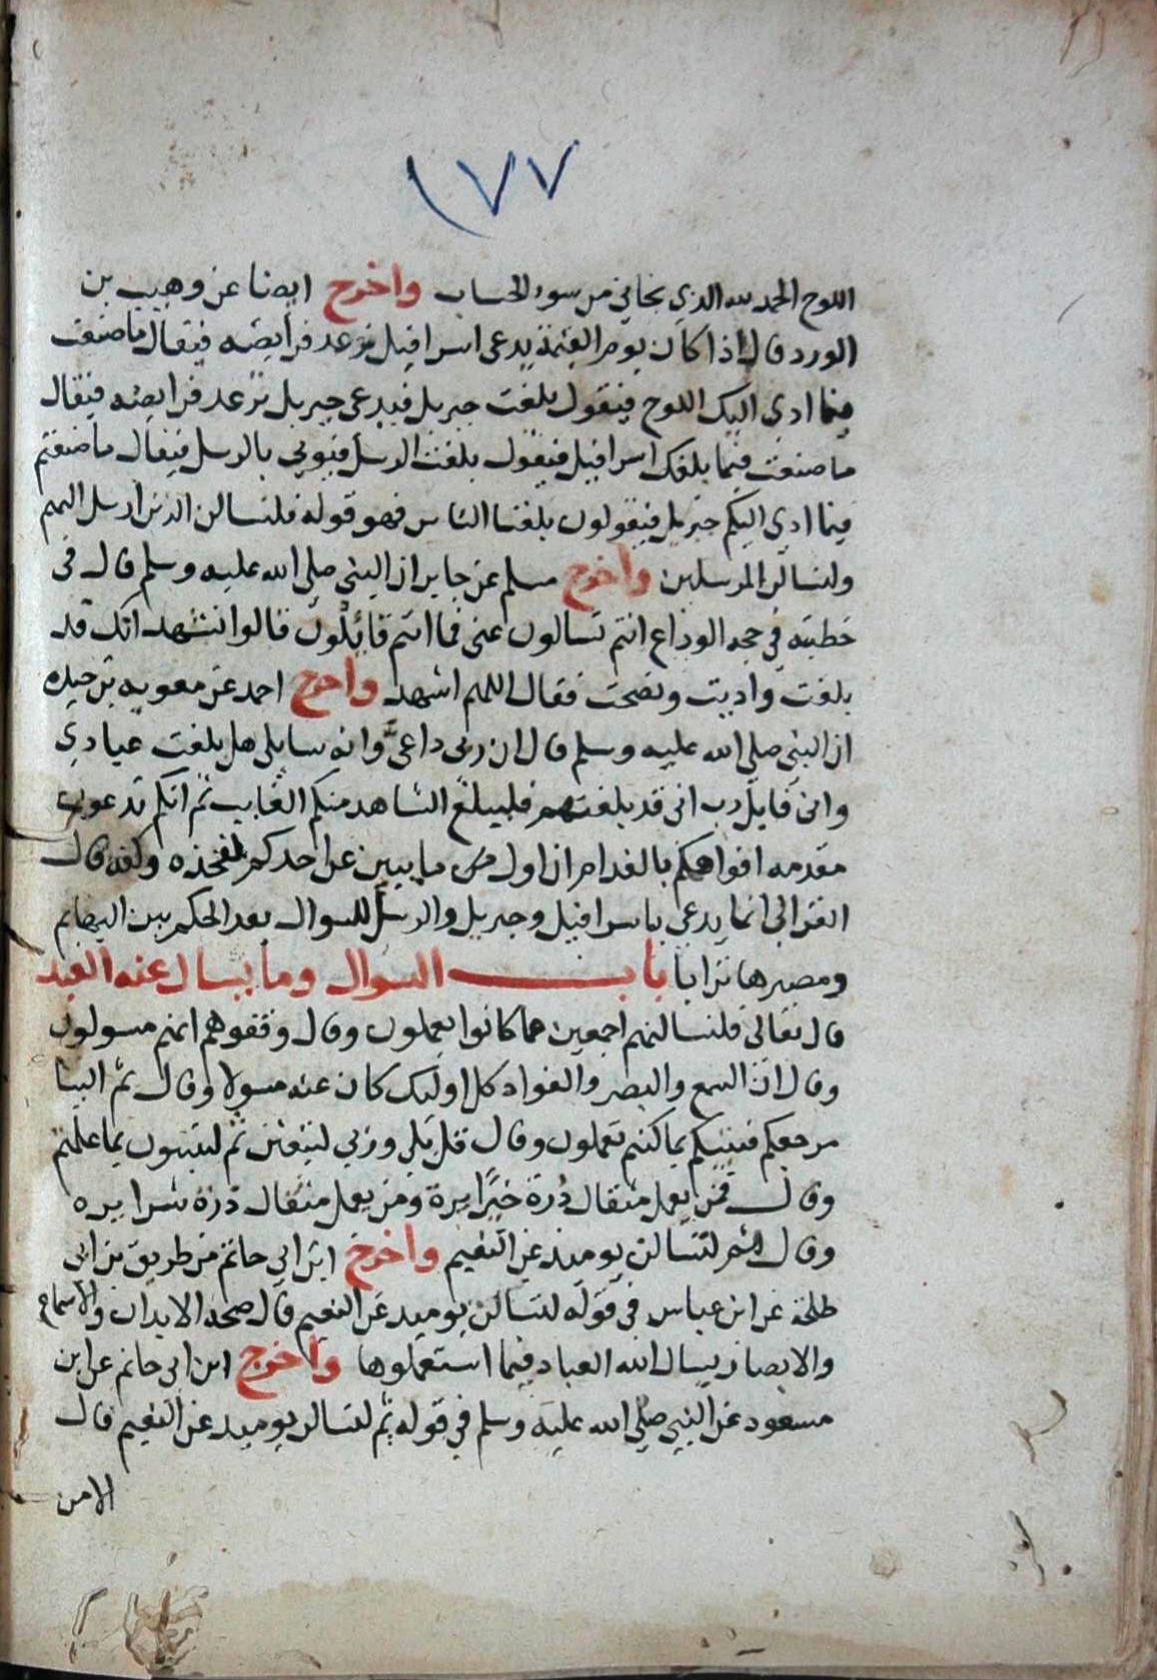 ١٧٧
اللوح الحمد لله الذي نجاني من سوء الحساب واخرج ايضا عن وهيب بن
الورد قال اذا كان يوم القيمة يدعى اسرافيل ترعد فرايصه فيقال ما صنعت
فيما ادى اليك اللوح فيقول بلغت جبريل فيدعى جبريل ترعد فرايصه فيقال
ما صنعت فيما بلغك اسرافيل فيقول بلغت الرسل فيوتى بالرسل فيقال ما صنعتم
فيما ادى اليكم جبريل فيقولون بلغنا الناس فهو قوله فلنسالن الذين ارسل اليهم
ولنسالن المرسلين واخرج مسلم عن جابر ان النبي صلى الله عليه وسلم قال في
خطبته في حجه الوداع انتم تسالون عني فما انتم قائلون قالوا نشهد انك قد
بلغت واديت ونصحت فقال اللهم اشهد واخرج احمد عن معويه بن حيده
ان النبي صلى الله عليه وسلم قال ان ربى داعيّ وانه سايلى هل بلغت عبادي
واني قايل رب انى قد بلغتهم فليبلغ الشاهد منكم الغايب ثم انكم تدعون
مقدمه افواهكم بالفدام ان اول ما يبين عن احدكم لفخذه وكفه قال
القرالى انما يدعى باسرافيل وجبريل والرسل للسوال بعد الحكم بين البهايم
ومصيرها ترابا باب السوال وما يسال عنه العبد
قال تعالى فلنسالنهم اجمعين عما كانوا يعملون وقال وقفوهم انهم مسولون
وقال ان السمع والبصر والفواد كل اوليك كان عنه مسولا وقال ثم الينا
مرجعكم فننبيكم بما كنتم تعملون وقال قل بلى وربي لتبعثن ثم لتنبون بما عملتم
وقال فمن يعمل مثقال ذرة خيرًا يرة ومن يعمل مثقال ذرة شرا يره
وقال ثم لتسالن يوميذ عن النعيم واخرج ابن ابي حاتم من طريق بن ابى
طلحة عن ابن عباس في قوله لتسالن يوميد عن النعيم قال صحه الابدان والاسماع
والابصار يسال الله العباد فيما استعملوها واخرج ابن ابي حاتم عن ابن
مسعود عن النبي صلى الله عليه وسلم في قوله ثم لتسالن يوميد عن النعيم قال
الامن